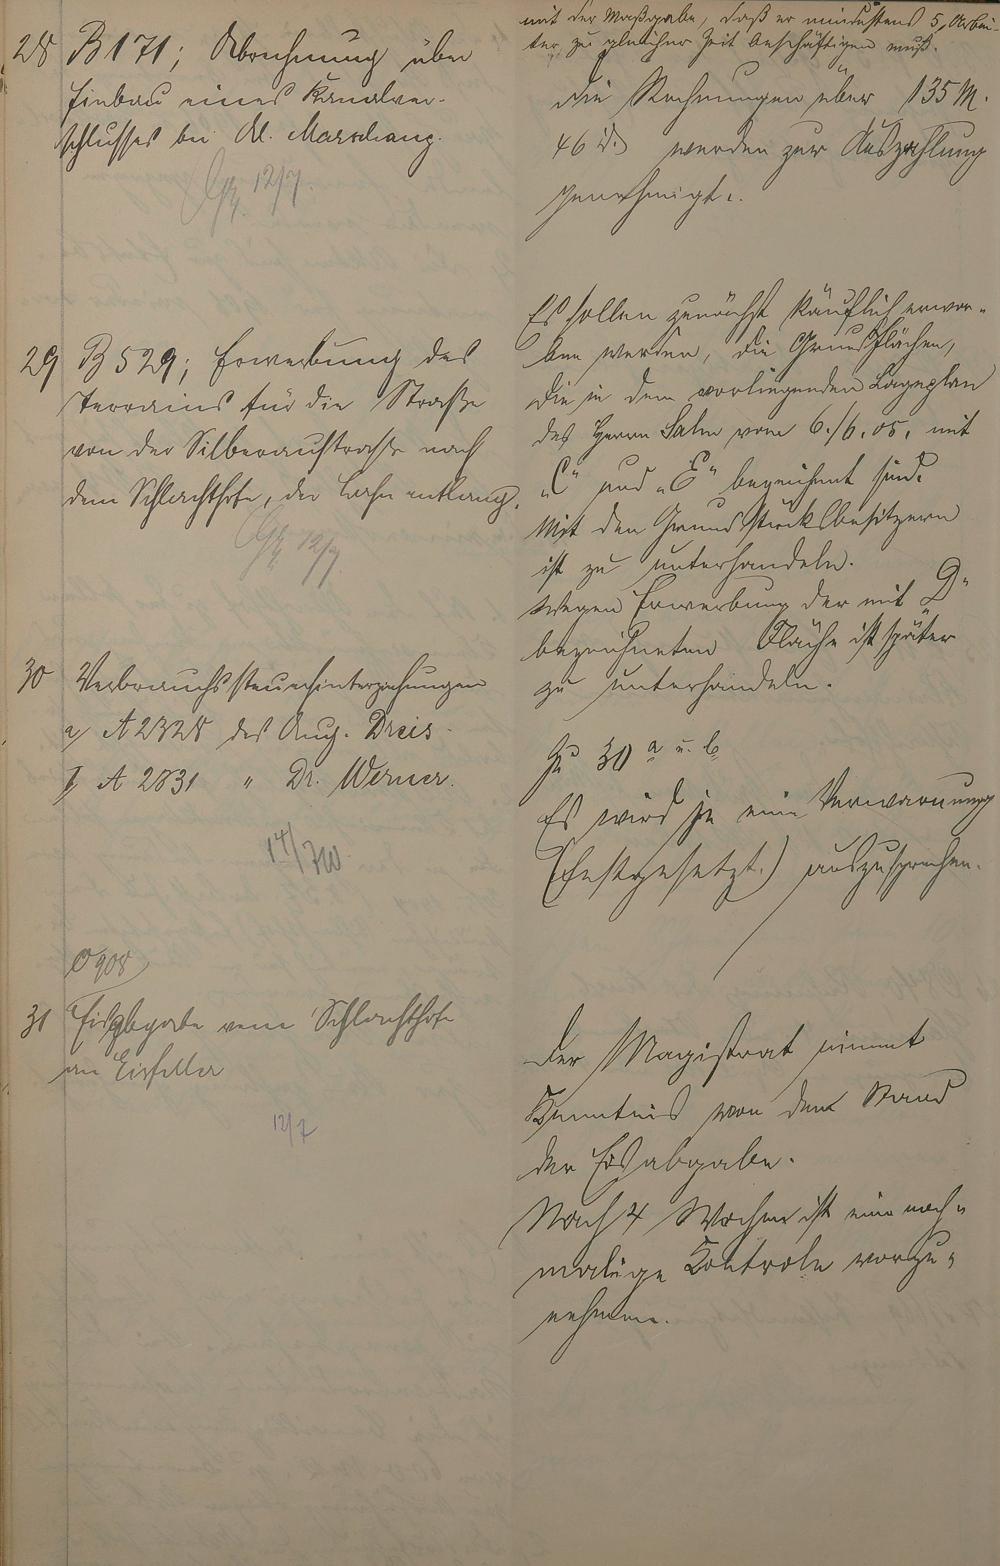 mit der Maßgabe, daß er mindestens 5 Arbei-
ter zu gleicher Zeit beschäftigen muß.
28 B 171; Abrechnung über
Einbau eines Kanalver-
schlusses bei Kl. Marschang.
12/7.
Die Rechnungen über 135 M.
46 d. werden zur Auszahlung
genehmigt.
29 B 529; Erwerbung des
Terrains für die Straße
von der Silberaustraße nach
dem Schlachthofe, der Bahn entlang.
12/7
Es sollen zunächst käuflich erwor-
ben werden, die Grundflächen,
die in dem vorliegenden Lageplan
des Herrn Salm vom 6./6.05. mit
„C“ und „E“ bezeichnet sind.
Mit den Grundstücksbesitzern
ist zu unterhandeln.
Wegen Erwerbung der mit „D“
bezeichneten Fläche ist später
zu unterhandeln.
30 Verbrauchssteuerhinterziehungen
a/ A 2328 des Aug. Dreis.
b/ A 2831 " Dr. Werner.
14/7
Zu 30 a u. b
Es wird je eine Verwarnung
(festgesetzt.) auszusprechen.
O 908
31 Eisabgabe vom Schlachthofe
an Eisfeller
12/7
Der Magistrat nimmt
Kenntnis von dem Stand
der Eisabgabe.
Nach 4 Wochen ist eine noch-
malige Kontrole vorzu-
nehmen.